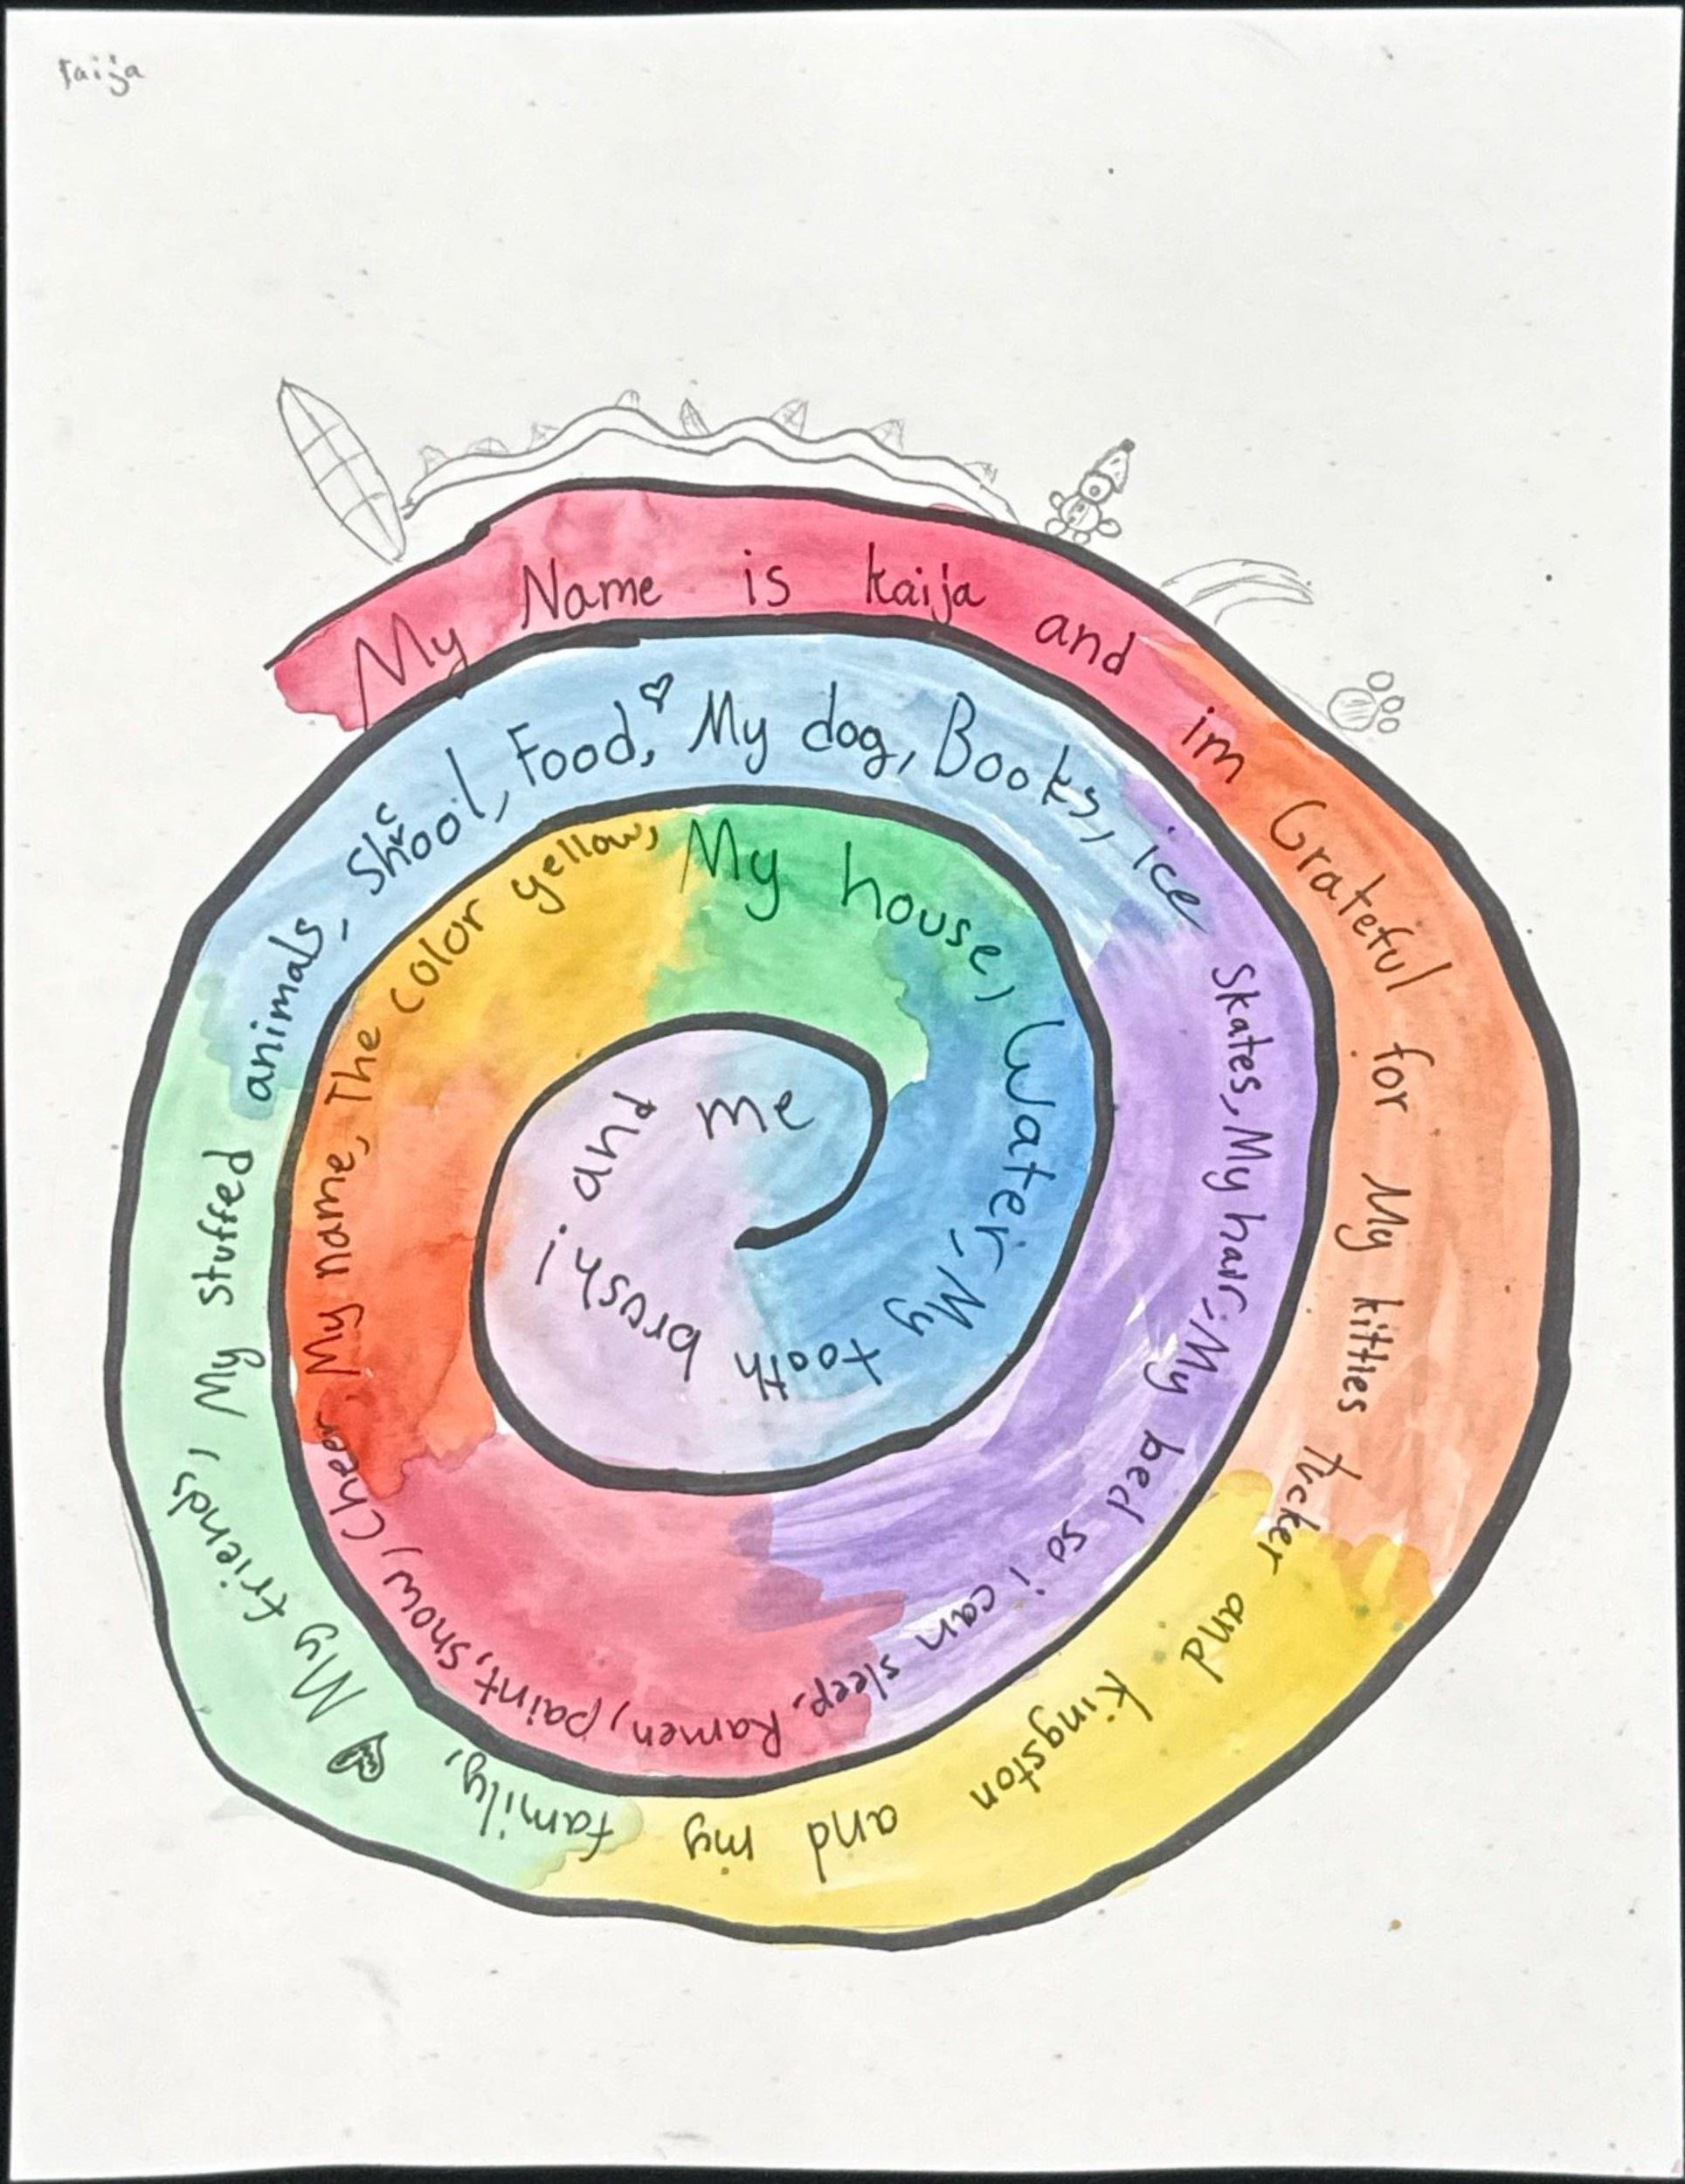 kaija
My Name is kaija and im Grateful for My kitties tucker and kingston and my family, My friends, My stuffed animals, School, Food, My dog, Books, ice skates, My hair, My bed so i can sleep, Ramen, paint, snow, Cheer, My name, The color yellow, My house, Water, My tooth brush! and me